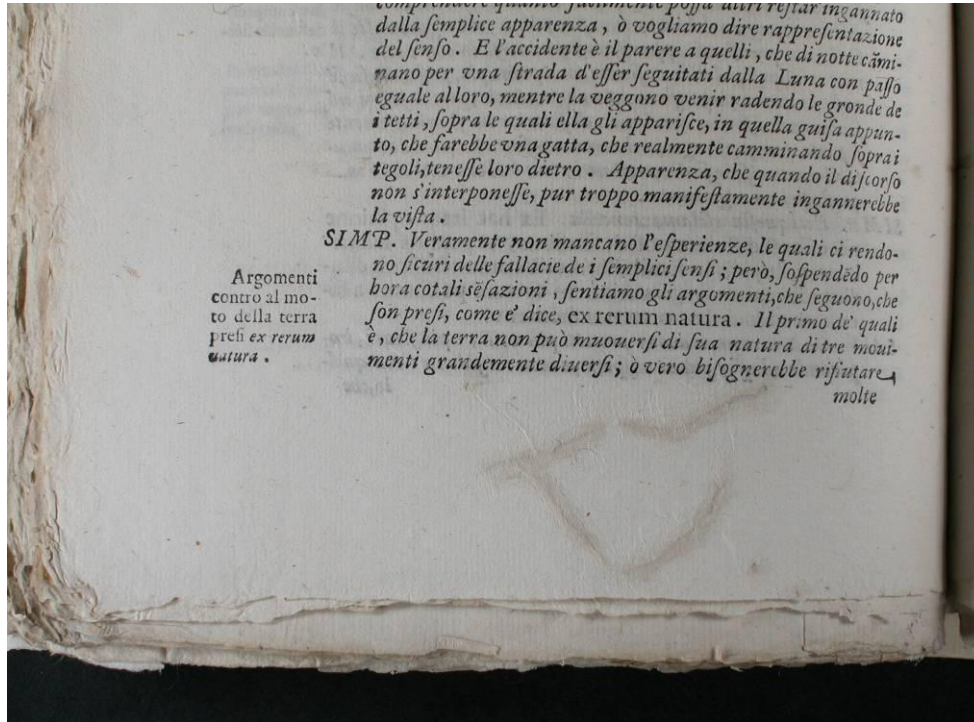 comprendere quanto facilmente possa altri restar ingannato
dalla ſemplice apparenza, ò vogliamo dire rappreſentazione
del ſenſo. E l'accidente è il parere a quelli, che di notte cãmi-
nano per vna ſtrada d'eſſer ſeguitati dalla Luna con paſſo
eguale al loro, mentre la veggono venir radendo le gronde de
i tetti, ſopra le quali ella gli appariſce, in quella guiſa appun-
to, che farebbe vna gatta, che realmente camminando ſopra i
tegoli, teneſſe loro dietro. Apparenza, che quando il diſcorſo
non s'interponeſſe, pur troppo manifeſtamente ingannerebbe
la viſta.
SIMP. Veramente non mancano l'eſperienze, le quali ci rendo-
no ſicuri delle fallacie de i ſemplici ſenſi; però, ſoſpendẽdo per
hora cotali sẽſazioni, ſentiamo gli argomenti, che ſeguono, che
ſon preſi, come e' dice, ex rerum natura. Il primo de' quali
è, che la terra non può muouerſi di ſua natura di tre moui-
menti grandemente diuerſi; ò vero biſognerebbe rifiutare
molte
Argomenti
contro al mo-
to della terra
preſi ex rerum
natura.